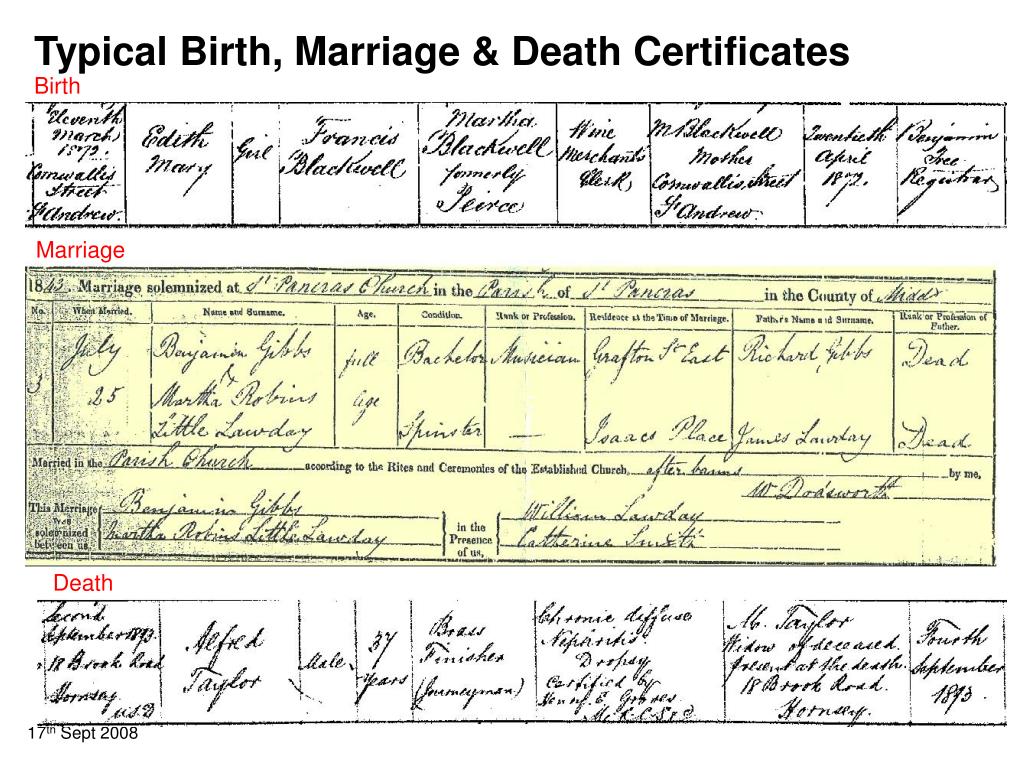 Typical Birth, Marriage & Death Certificates
Birth
Eleventh
March
1872.
Cornwallis
Street
St Andrew.
Edith
Mary
Girl
Francis
Blackwell
Martha
Blackwell
formerly
Peirce
Wine
Merchants
Clerk
M Blackwell
Mother
Cornwallis Street
St Andrew.
Twentieth
April
1872.
Benjamin
Tree
Registrar
Marriage
1843. Marriage solemnized at St Pancras Church in the Parish of St Pancras in the County of Middx
No. When Married. Name and Surname. Age. Condition. Rank or Profession. Residence at the Time of Marriage. Father's Name and Surname. Rank or Profession of Father.
3 July 25
Benjamin Gibbs full age Bachelor Musician Grafton St East Richard Gibbs Dead
&
Martha Robins
Little Lawday Spinster — Isaacs Place James Lawday Dead
Married in the Parish Church according to the Rites and Ceremonies of the Established Church, after banns by me,
W Dodsworth
This Marriage was solemnized between us,
Benjamin Gibbs
Martha Robins Little Lawday
in the Presence of us,
William Lawday
Catherine Smith
Death
Second
September 1893
18 Brook Road
Hornsey
U.S.D
Alfred
Taylor
Male
37
years
Brass
Finisher
(Journeyman)
Chronic diffuse
Nephritis
Dropsy
Certified by
Henry E. Groves
M. Taylor
Widow of deceased.
Present at the death.
18 Brook Road.
Hornsey.
Fourth
September
1893.
17th Sept 2008